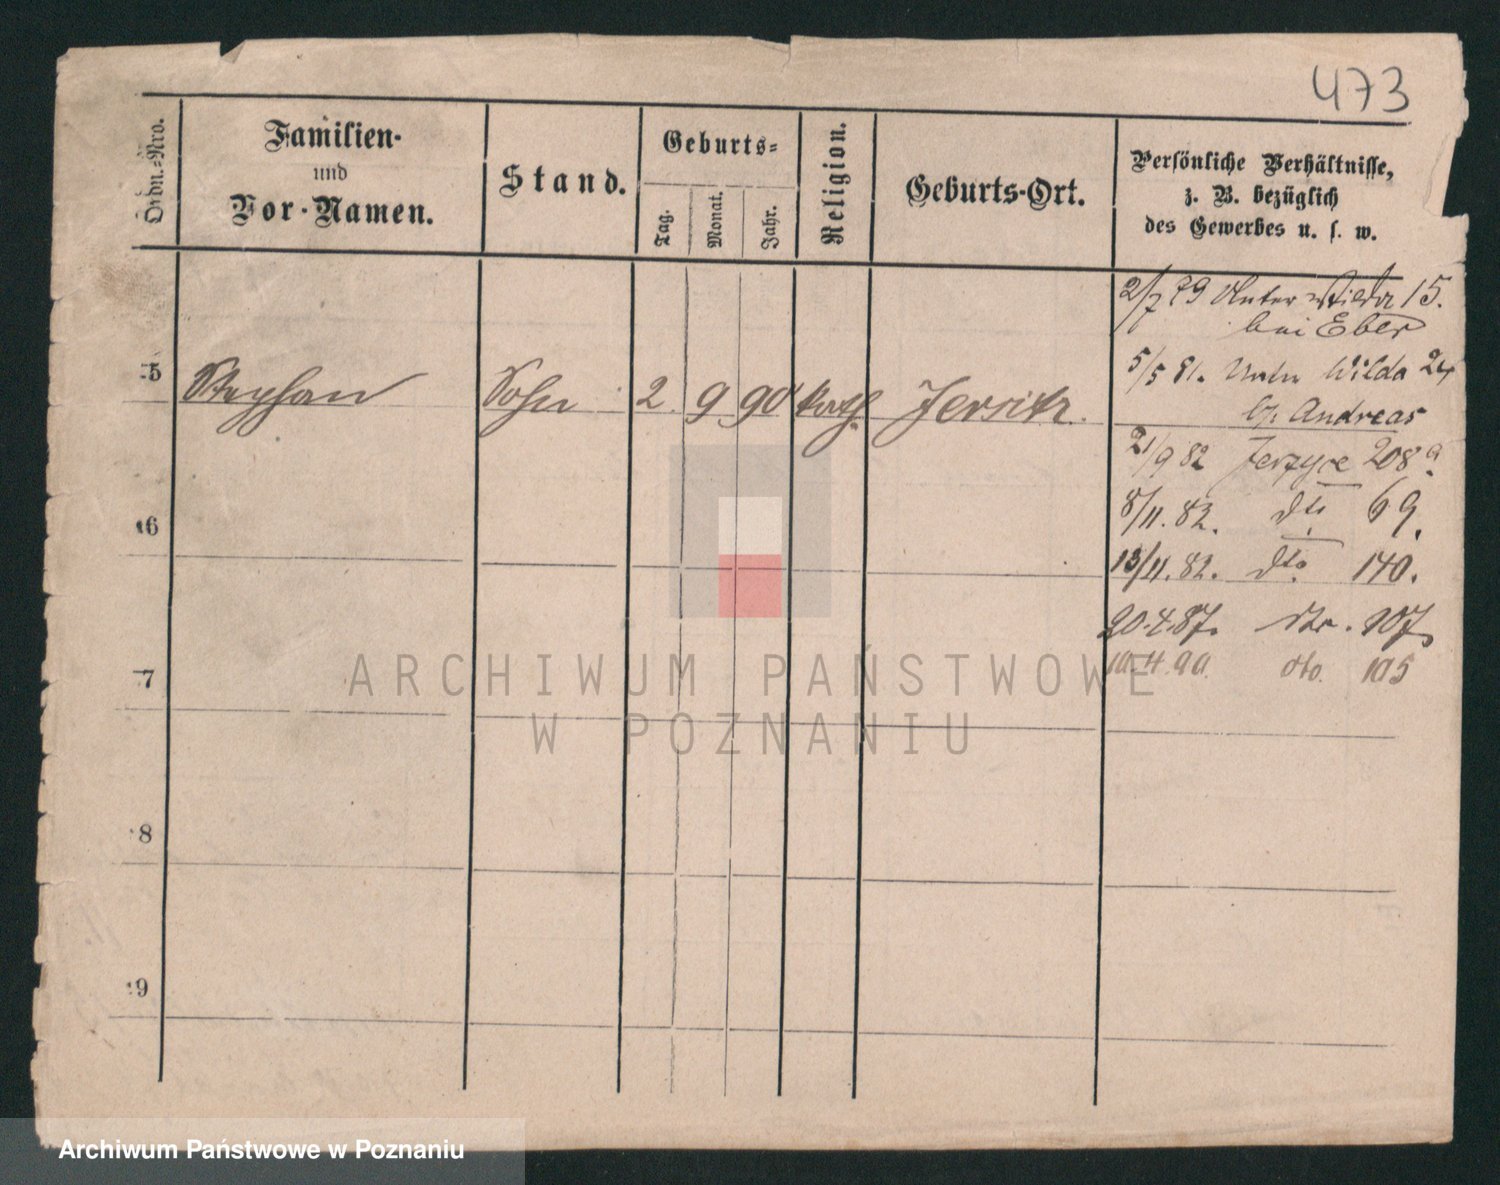 473
Ordn.-Nro.
Familien-
und
Vor-Namen.
Stand.
Geburts-
Tag.
Monat.
Jahr.
Religion.
Geburts-Ort.
Persönliche Verhältnisse,
z. B. bezüglich
des Gewerbes u. s. w.
2/7 79 Unter Wilda 15.
bei Eber
5 Stephan Sohn 2. 9 90 kath. Jersitz.
5/5 81. Unter Wilda 24
b/. Andreas
21/9 82 Jerzyce 208a.
6
8/11. 82. dto. 69.
13/11. 82. dto. 140.
20.4.87. dto. 107.
7
10.4.90. dto. 105
8
9
ARCHIWUM PAŃSTWOWE
W POZNANIU
Archiwum Państwowe w Poznaniu